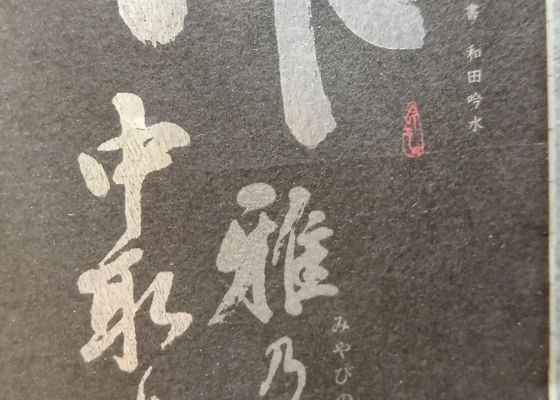 書 和田吟水
雅乃
みやびの
中取